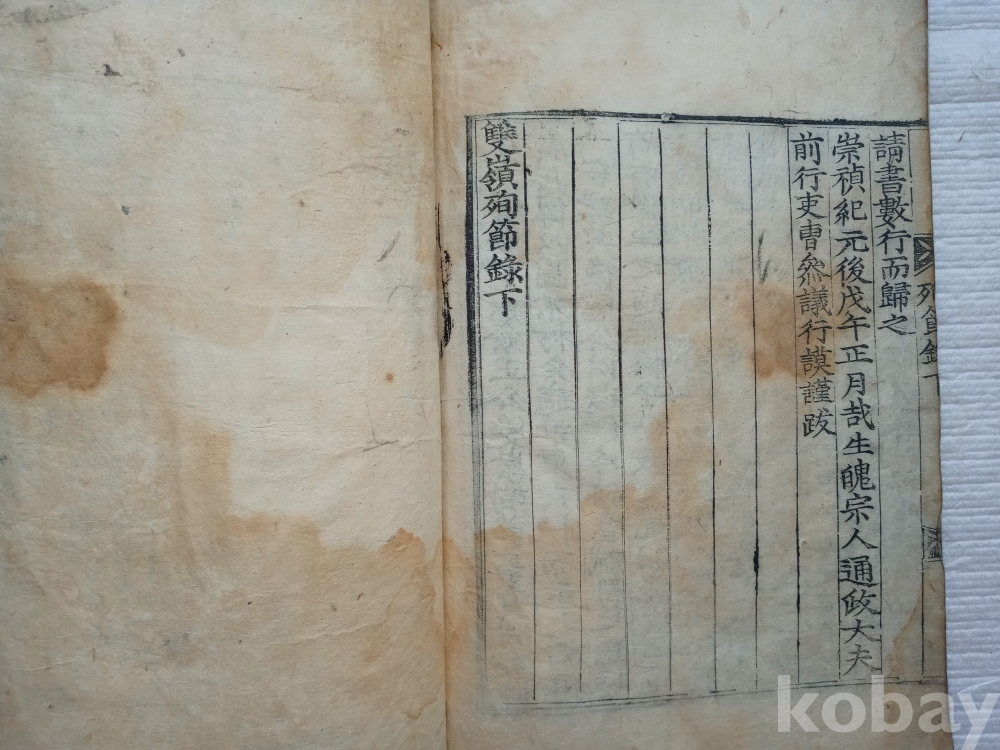 請書數行而歸之
崇禎紀元後戊午正月哉生魄宗人通政大夫
前行吏曹叅議行謨謹跋
雙嶺殉節錄下
殉節錄下
kobay